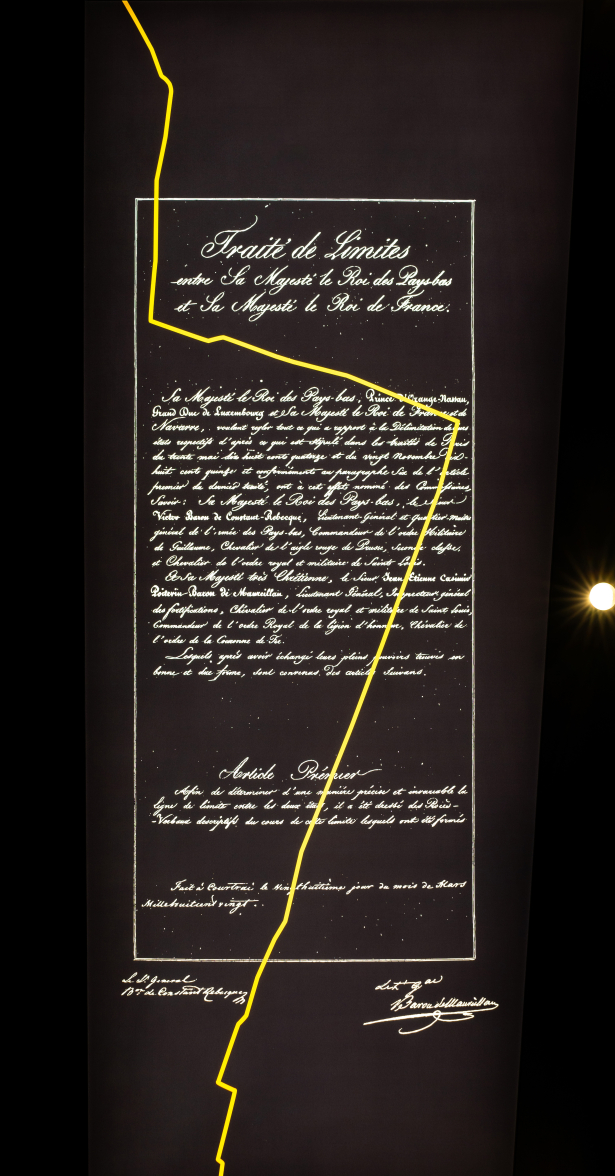 Traité de Limites
entre Sa Majesté le Roi des Pays-bas
et Sa Majesté le Roi de France.
Sa Majesté le Roi des Pays-bas, Prince d'Orange-Nassau,
Grand Duc de Luxembourg et Sa Majesté le Roi de France et de
Navarre, voulant regler tout ce qui a rapport à la Délimitation de
états respectifs d'après ce qui est stipulé dans les traités de Paris
du trente mai dix huit cent quatorze et du vingt novembre
huit cent quinze et conformément au paragraphe Six de l'article
premier du dernier traité, ont à cet effet nommé des Commissaires,
Savoir : Sa Majesté le Roi des Pays-bas, le Sieur
Victor Baron de Constant-Rebecque, Lieutenant-Général et Quartier maitre
général de l'armée des Pays-Bas, Commandeur de l'ordre Militaire
de Guillaume, Chevalier de l'aigle rouge de Prusse, Seconde classe,
et Chevalier de l'ordre royal et militaire de Saint Louis.
Et Sa Majesté très Chrétienne, le Sieur Jean Etienne Casimir
Poitevin Baron de Maureillan, Lieutenant Général, Inspecteur général
des fortifications, Chevalier de l'ordre royal et militaire de Saint Louis,
Commandeur de l'ordre Royal de la légion d'honneur, Chevalier de
l'ordre de la Couronne de Fer.
Lesquels, après avoir échangé leurs pleins pouvoirs trouvés en
bonne et due forme, sont convenus des articles Suivans.
Article Prémier
Afin de déterminer d'une manière précise et invariable la
ligne de limite entre les deux états, il a été dressé des Procès-
-Verbaux descriptifs du cours de cette limite lesquels ont été formés
Fait à Courtrai le vingthuitième jour du mois de Mars
Millehuitcent vingt.
Le Lt. General
Bon de Constant Rebecque
Baron de Maureillan